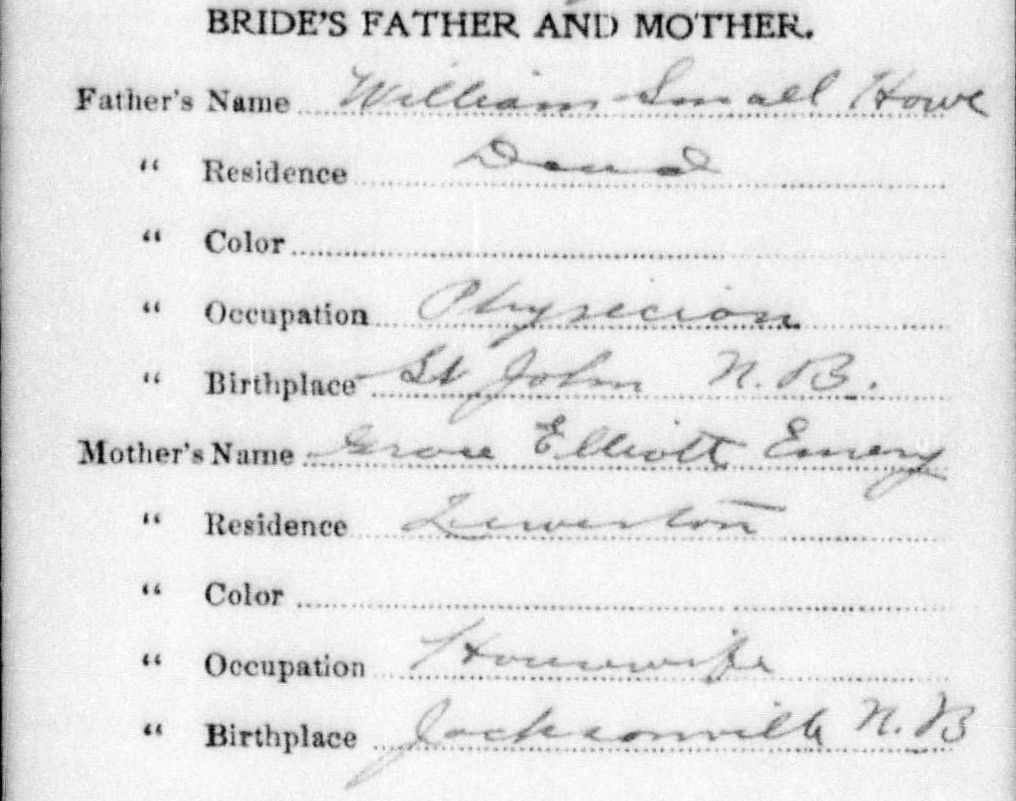 BRIDE'S FATHER AND MOTHER.
Father's Name William Small Howe
" Residence Dead
" Color
" Occupation Physician
" Birthplace St John N.B.
Mother's Name Grace Elliott Emery
" Residence Lewiston
" Color
" Occupation Housewife
" Birthplace Jacksonville N.B